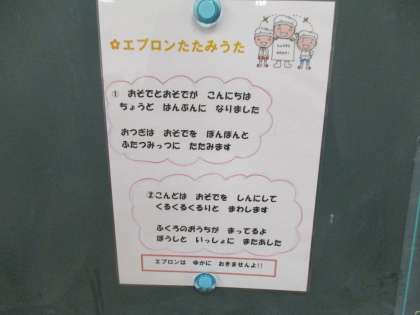 ✿エプロンたたみうた
① おそでとおそでが こんにちは
ちょうど はんぶんに なりました
おつぎは おそでを ぽんぽんと
ふたつみっつに たたみます
②こんどは おそでを しんにして
くるくるくるりと まわします
ふくろのおうちが まってるよ
ぼうしと いっしょに またあした
エプロンは ゆかに おきませんよ!!